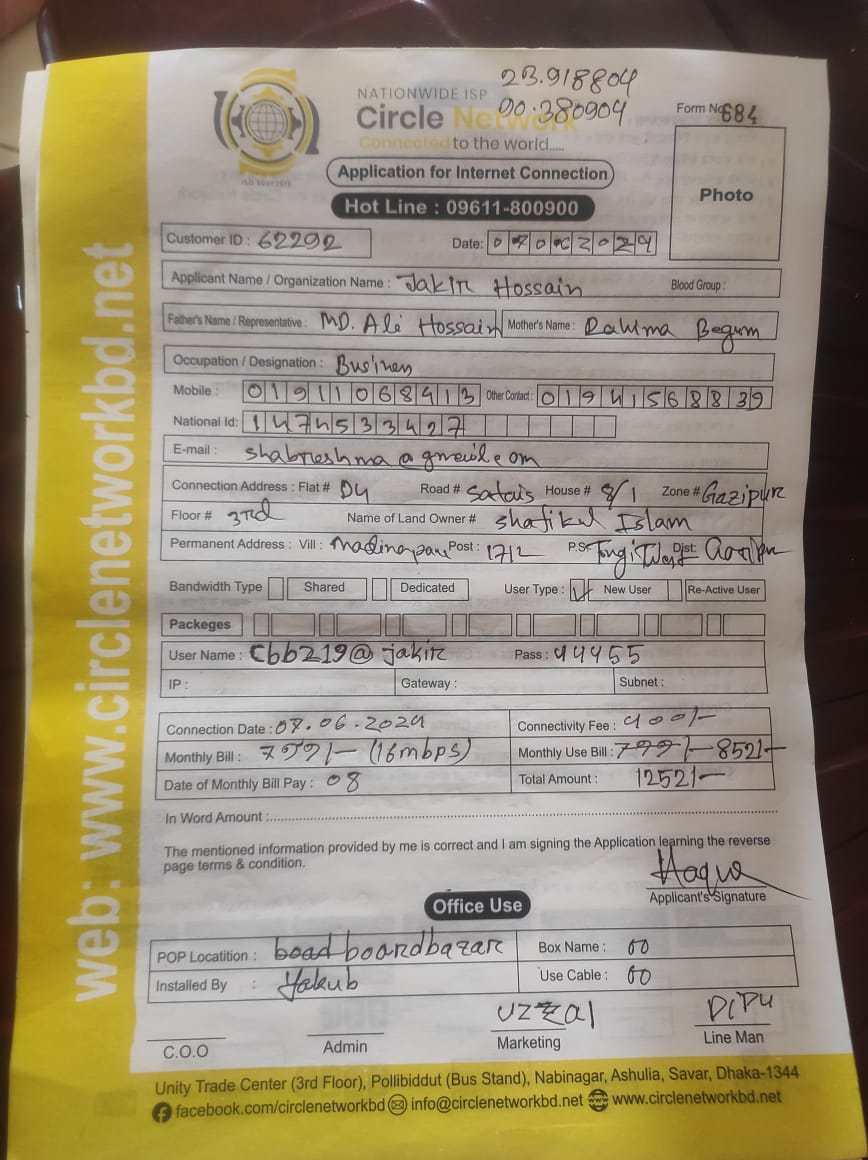 23.918804
90.380904
NATIONWIDE ISP
Circle Network
Connected to the world.....
ISO 9001:2015
Form No. 684
Application for Internet Connection
Hot Line : 09611-800900
Photo
Customer ID : 62292 Date:
Applicant Name / Organization Name : Jakir Hossain Blood Group :
Father's Name / Representative : MD. Ali Hossain Mother's Name : Rahima Begum
Occupation / Designation : Business
Mobile : 01911068413 Other Contact : 01941568839
National Id: 1474533427
E-mail :
Connection Address : Flat # D4 Road # Satais House # 8/1 Zone # Gazipur
Floor # 3rd Name of Land Owner # Shafikul Islam
Permanent Address : Vill : Post : 1712 P.S: Tongi West Dist:
Bandwidth Type Shared Dedicated User Type : New User Re-Active User
Packeges
User Name : cbb219@jakir Pass : 44455
IP : Gateway : Subnet :
Connection Date : 08.06.2024 Connectivity Fee : 400/-
Monthly Bill : 799/- (16mbps) Monthly Use Bill : 799/- 852/-
Date of Monthly Bill Pay : 08 Total Amount : 1252/-
In Word Amount :
The mentioned information provided by me is correct and I am signing the Application learning the reverse
page terms & condition.
Haque
Applicant's Signature
Office Use
POP Locatition : boad boardbazar Box Name : 00
Installed By : Yakub Use Cable : 00
UZZAl DIPU
C.O.O Admin Marketing Line Man
Unity Trade Center (3rd Floor), Pollibiddut (Bus Stand), Nabinagar, Ashulia, Savar, Dhaka-1344
facebook.com/circlenetworkbd info@circlenetworkbd.net www.circlenetworkbd.net
web: www.circlenetworkbd.net